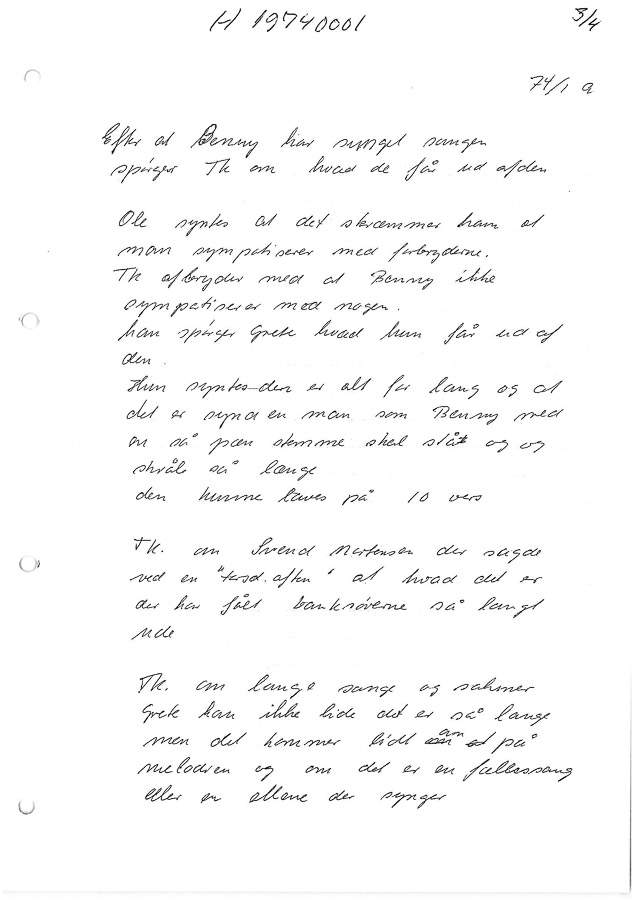 H 19740001
3/4
74/1 a
Efter at Benny har synget sangen
spørger TK om hvad de får ud af den
Ole syntes at det skræmmer ham at
man sympatiserer med forbryderne.
TK afbryder med at Benny ikke
sympatiserer med nogen.
han spørger Grete hvad hun får ud af
den.
Hun syntes den er alt for lang og at
det er synd en man som Benny med
en så pæn stemme skal stå og og
skråle så længe
den kunne laves på 10 vers
TK. om Svend Mortensen der sagde
ved en "torsd. aften" at hvad det er
der har fået bankrøverne så langt
ude
TK. om lange sange og salmer
Grete kan ikke lide det er så lange
men det kommer lidt an på
melodien og om det er en fællessang
eller en allene der synger